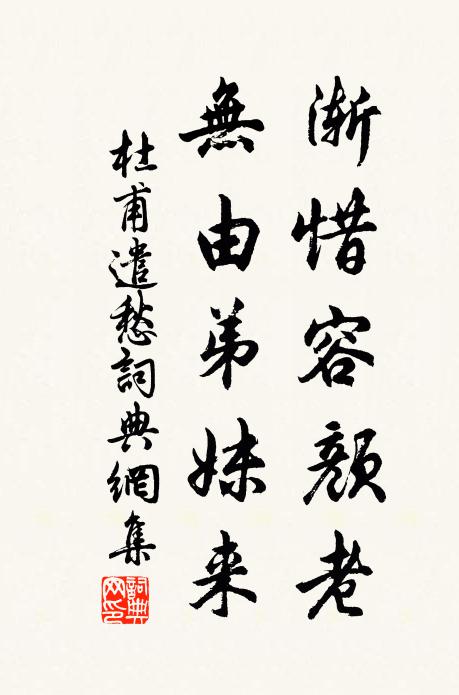 漸惜容顔老
無由弟妹来
杜甫遣愁詞典網集
詞典网印